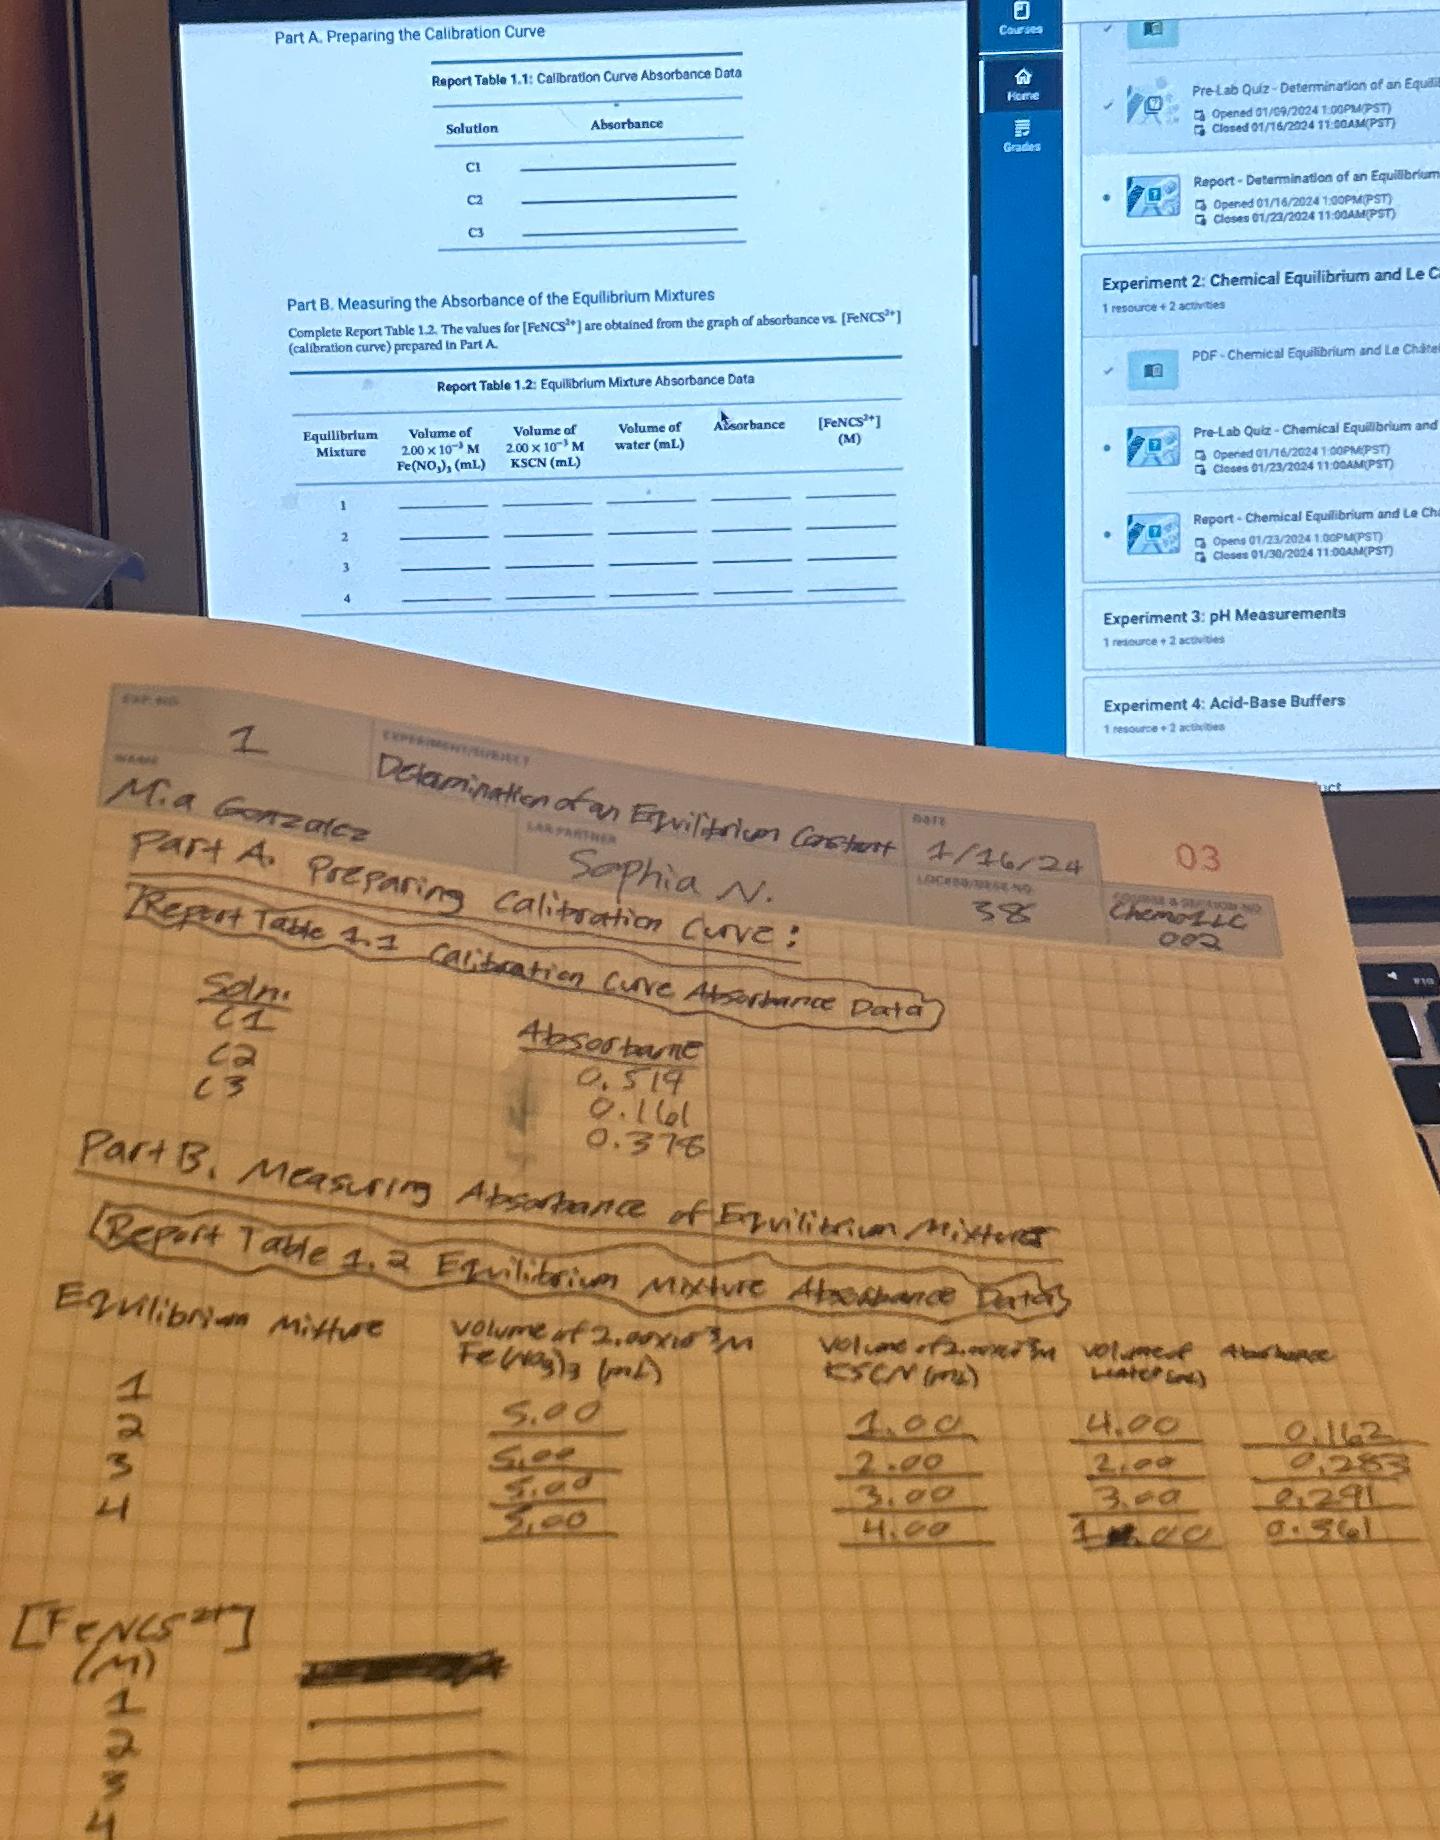 Part A. Preparing the Calibration Curve
Report Table 1.1: Calibration Curve Absorbance Data
Solution Absorbance
C1
C2
C3
Part B. Measuring the Absorbance of the Equilibrium Mixtures
Complete Report Table 1.2. The values for [FeNCS²⁺] are obtained from the graph of absorbance vs. [FeNCS²⁺]
(calibration curve) prepared in Part A.
Report Table 1.2: Equilibrium Mixture Absorbance Data
Equilibrium Mixture Volume of 2.00 × 10⁻³ M Fe(NO₃)₃ (mL) Volume of 2.00 × 10⁻³ M KSCN (mL) Volume of water (mL) Absorbance [FeNCS²⁺] (M)
1
2
3
4
Courses
Home
Grades
Pre-Lab Quiz - Determination of an Equili
Opened 01/09/2024 1:00PM(PST)
Closed 01/16/2024 11:00AM(PST)
Report - Determination of an Equilibrium
Opened 01/16/2024 1:00PM(PST)
Closes 01/23/2024 11:00AM(PST)
Experiment 2: Chemical Equilibrium and Le C
1 resource + 2 activities
PDF - Chemical Equilibrium and Le Châte
Pre-Lab Quiz - Chemical Equilibrium and
Opened 01/16/2024 1:00PM(PST)
Closes 01/23/2024 11:00AM(PST)
Report - Chemical Equilibrium and Le Ch
Opens 01/23/2024 1:00PM(PST)
Closes 01/30/2024 11:00AM(PST)
Experiment 3: pH Measurements
1 resource + 2 activities
Experiment 4: Acid-Base Buffers
1 resource + 2 activities
uct
EXP. NO. EXPERIMENT/SUBJECT DATE
1 Determination of an Equilibrium Constant 1/16/24 03
NAME LAB PARTNER LOCKER/DESK NO. COURSE & SECTION NO.
Mia Gonzalez Sophia N. 38 Chem01LC
002
Part A. Preparing Calibration Curve:
Report Table 1.1 Calibration Curve Absorbance Data
Soln. Absorbance
C1 0.519
C2 0.161
C3 0.378
Part B. Measuring Absorbance of Equilibrium Mixtures
Report Table 1.2 Equilibrium Mixture Absorbance Data
Equilibrium Mixture Volume of 2.00x10⁻³M Fe(NO₃)₃ (mL) Volume of 2.00x10⁻³M KSCN (mL) Volume of water (mL) Absorbance
1 5.00 1.00 4.00 0.162
2 5.00 2.00 2.00 0.283
3 5.00 3.00 3.00 0.291
4 5.00 4.00 1.00 0.361
[FeNCS²⁺]
(M)
1
2
3
4
F10